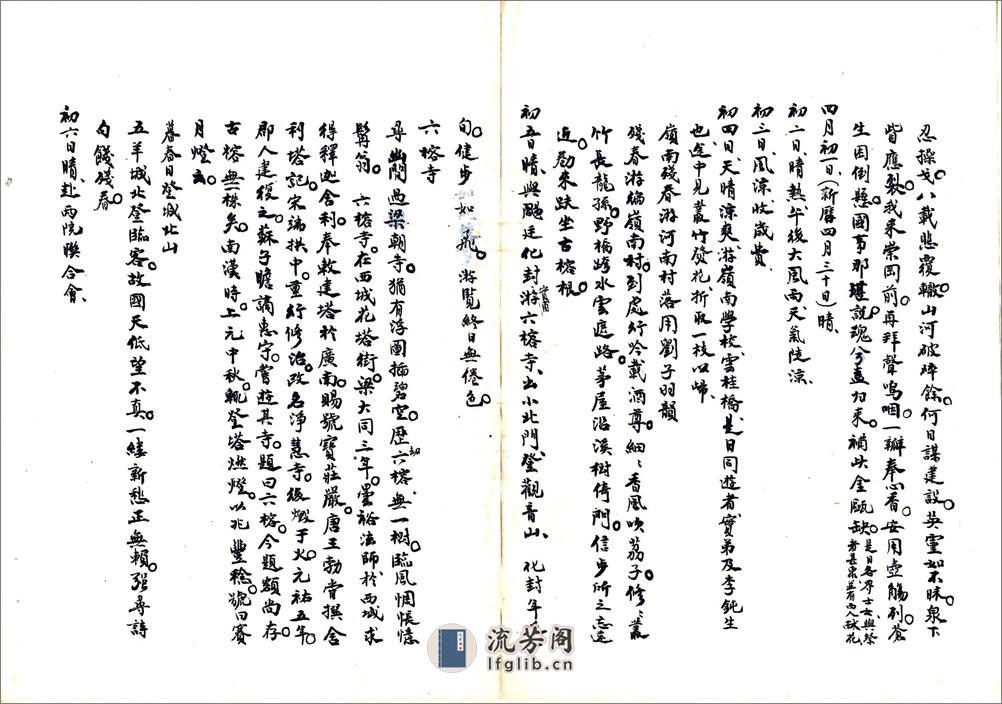 忍操戈。八載悲覆轍。山河破碎餘。何日謀建設。英靈如不昧。泉下
皆應裂。我來崇岡前。再拜聲嗚咽。一瓣奉心香。安用壺觴列。蒼
生困倒懸。國事那堪說。魂兮盍歸來。補此金甌缺。是日各界士女與祭者甚眾並有西人獻花
四月初一日、(新曆四月三十日)晴、
初二日、晴熱、午後大風雨、天氣陡涼、
初三日、風涼、收歲費、
初四日、天晴涼爽、游嶺南學校、雲桂橋、是日同遊者、寶弟及李鈍生
也、途中見叢竹發花、折取一枝以歸、
嶺南殘春游河南村落用劉子羽韻
殘春游編嶺南村。到處行吟載酒尊。細細香風吹荔子。修修叢
竹長龍孫。野橋跨水雲迷路。茅屋沿溪樹倚門。信步所之忘遠
近。勸來趺坐古榕根。
初五日晴、與颺廷化封游六榕寺、出小北門、登觀音山、化封年
旬。健步如飛。游覽終日無倦色。
六榕寺
尋幽閒過梁朝寺。猶有浮圖插碧空。歷劫六榕無一樹。臨風惆悵憶
髯翁。六榕寺。在西城花塔街。梁大同三年。曇裕法師於西域求
得釋迦舍利。奉敕建塔於廣南。賜號寶莊嚴。唐王勃嘗撰舍
利塔記。宋端拱中。重行修治。改名淨慧寺。後燬于火。元祐五年。
郡人建復之。蘇子瞻謫惠守。嘗遊其寺。題曰六榕。今題額尚存。
古榕無一株矣。南漢時。上元中秋。輒登塔燃燈。以兆豐稔。號曰賽
月燈云。
暮春日登城北山
五羊城北登臨客。故國天低望不真。一縷新愁正無賴。強尋詩
句餞殘春。
初六日晴、赴兩院聯合會、
流芳阁
lfglib.cn